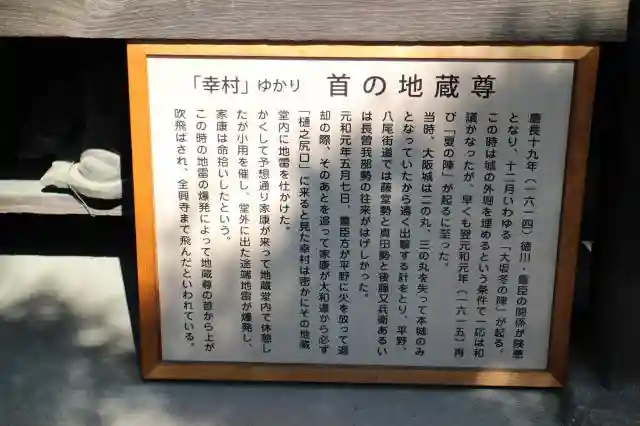 「幸村」ゆかり 首の地蔵尊
慶長十九年（一六一四）徳川・豊臣の関係が険悪
となり、十二月いわゆる「大坂冬の陣」が起る。
この時は城の外堀を埋めるという条件で一応は和
議がなったが、早くも翌元和元年（一六一五）再
び「夏の陣」が起るに至った。
当時、大阪城は二の丸、三の丸を失って本城のみ
となっていたから遠く出撃する計をとり、平野、
八尾街道では藤堂勢と真田勢と後藤又兵衛あるい
は長曽我部勢の往来がはげしかった。
元和元年五月七日、豊臣方が平野に火を放って退
却の際、そのあとを追って家康が大和道から必ず
「樋之尻口」に来ると見た幸村は密かにその地蔵
堂内に地雷を仕かけた。
かくして予想通り家康が来って地蔵堂内で休憩し
たが小用を催し、堂外に出た途端地雷が爆発し、
家康は命拾いしたという。
この時の地雷の爆発によって地蔵尊の首から上が
吹飛ばされ、全興寺まで飛んだといわれている。